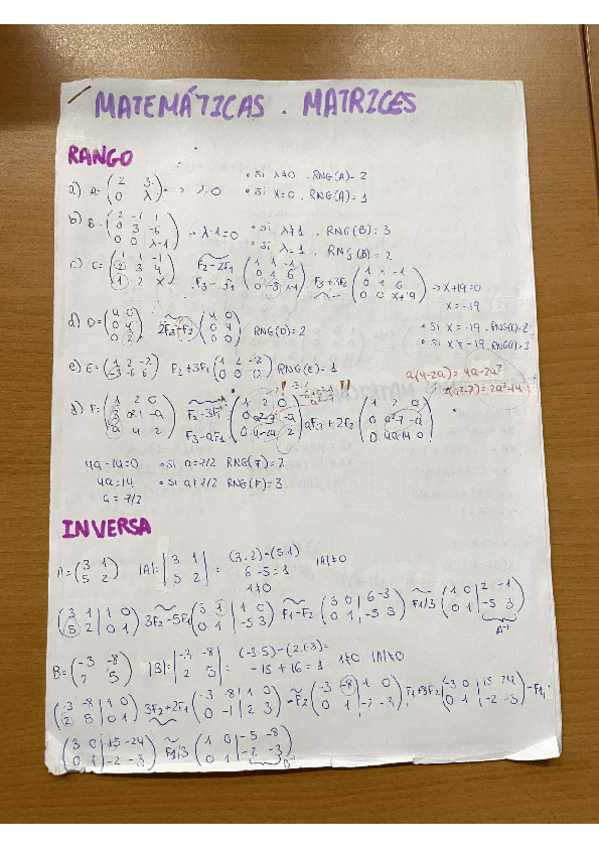 MATEMÁTICAS. MATRICES
RANGO
a) A=(2 3; 0 λ) → λ=0 • Si λ≠0. RNG(A)=2
• Si λ=0. RNG(A)=1
b) B=(2 -1 1; 0 3 -6; 0 0 λ-1) • λ-1=0 • Si λ≠1. RNG(B)=3
• Si λ=1. RNG(B)=2
c) C=(1 1 -1; 2 3 4; 1 2 x) F2-2F1 F3-F1 (1 1 -1; 0 1 6; 0 -3 ) F3+3F2 (1 x -1; 0 1 6; 0 0 x+19) → x+19=0
x=-19
d) D=(4 0; 0 4; 0 2) 2F3-F2 (4 0; 0 4; 0 0) RNG(D)=2 • Si x=-19. RNG(C)=2
• Si x≠-19. RNG(C)=3
e) E=(1 2 -2; -3 -6 6) F2+3F1 (1 2 -2; 0 0 0) RNG(E)=1
a(4-2a)=4a-2a²
2(a²-7)=2a²-14
F=(1 2 0; 2) F3-aF1 (1 2 0; 0 -a; 0 4-2a 2) aF3+2F2 (1 2 0; 0 a²-7 -a; 0 4a-14 0)
4a-14=0 • Si a=7/2 RNG(F)=2
4a=14 • Si a≠7/2 RNG(F)=3
a=7/2
INVERSA
A=(3 1; 5 2) |A|=|3 1; 5 2|= (3·2)-(5·1) |A|≠0
6-5=1
1≠0
(3 1|1 0; 5 2|0 1) 3F2-5F1 (3 1|1 0; 0 1|-5 3) F1-F2 (3 0|6 -3; 0 1|-5 3) F1/3 (1 0|2 -1; 0 1|-5 3)
A⁻¹
B=(-3 -8; 2 5) |B|=|-3 -8; 2 5|= (-3·5)-(2·(-8)=
-15+16=1 1≠0 |A|≠0
(-3 -8|1 0; 2 5|0 1) 3F2+2F1 (-3 -8|1 0; 0 -1|2 3) -F2 (-3 -8|1 0; 0 1|-2 -3) F1+8F2 (-3 0|15 24; 0 1|-2 -3) -F1
(3 0|-15 -24; 0 1|-2 -3) F1/3 (1 0|-5 -8; 0 1|-2 -3)
B⁻¹